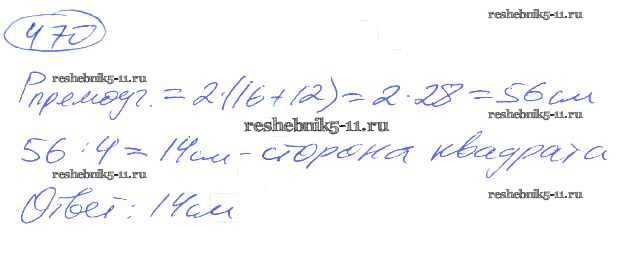 470
reshebnik5-11.ru
reshebnik5-11.ru
reshebnik5-11.ru
Pпрямоуг. = 2·(16+12) = 2·28 = 56 см
reshebnik5-11.ru
reshebnik5-11.ru
56 : 4 = 14 см - сторона квадрата
reshebnik5-11.ru
reshebnik5-11.ru
Ответ: 14 см